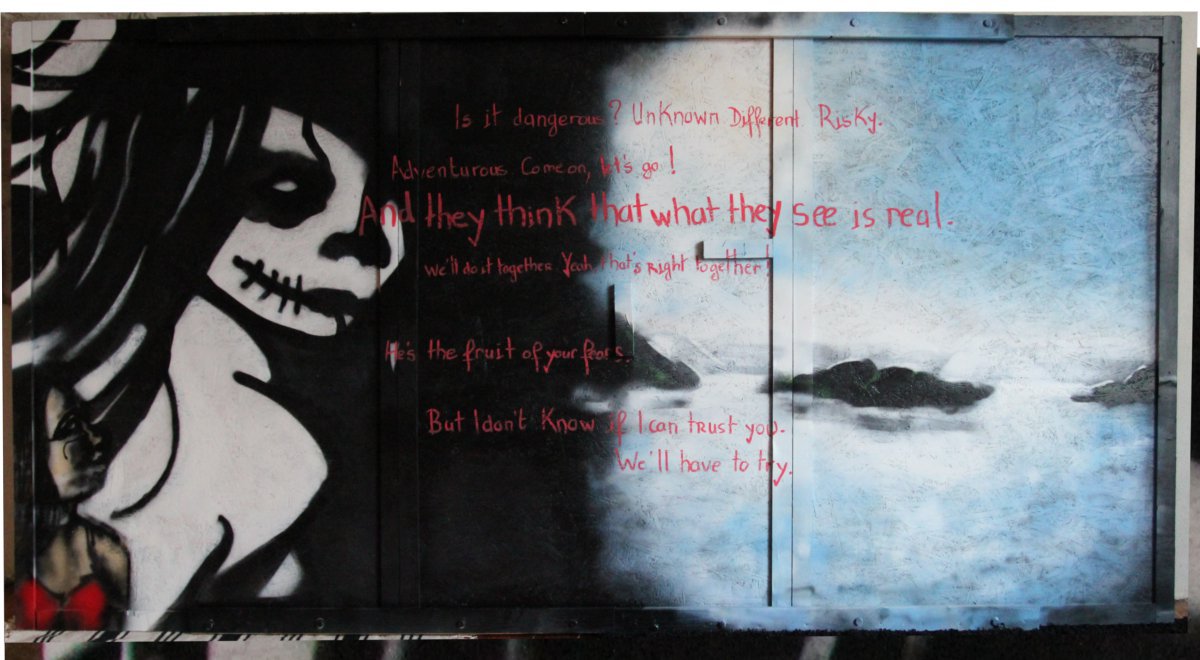 Is it dangerous? Unknown Different Risky.
Adventurous Come on, let's go!
And they think that what they see is real.
We'll do it together. Yeah, that's right together!
He's the fruit of your fears.
But I don't know if I can trust you.
We'll have to try.